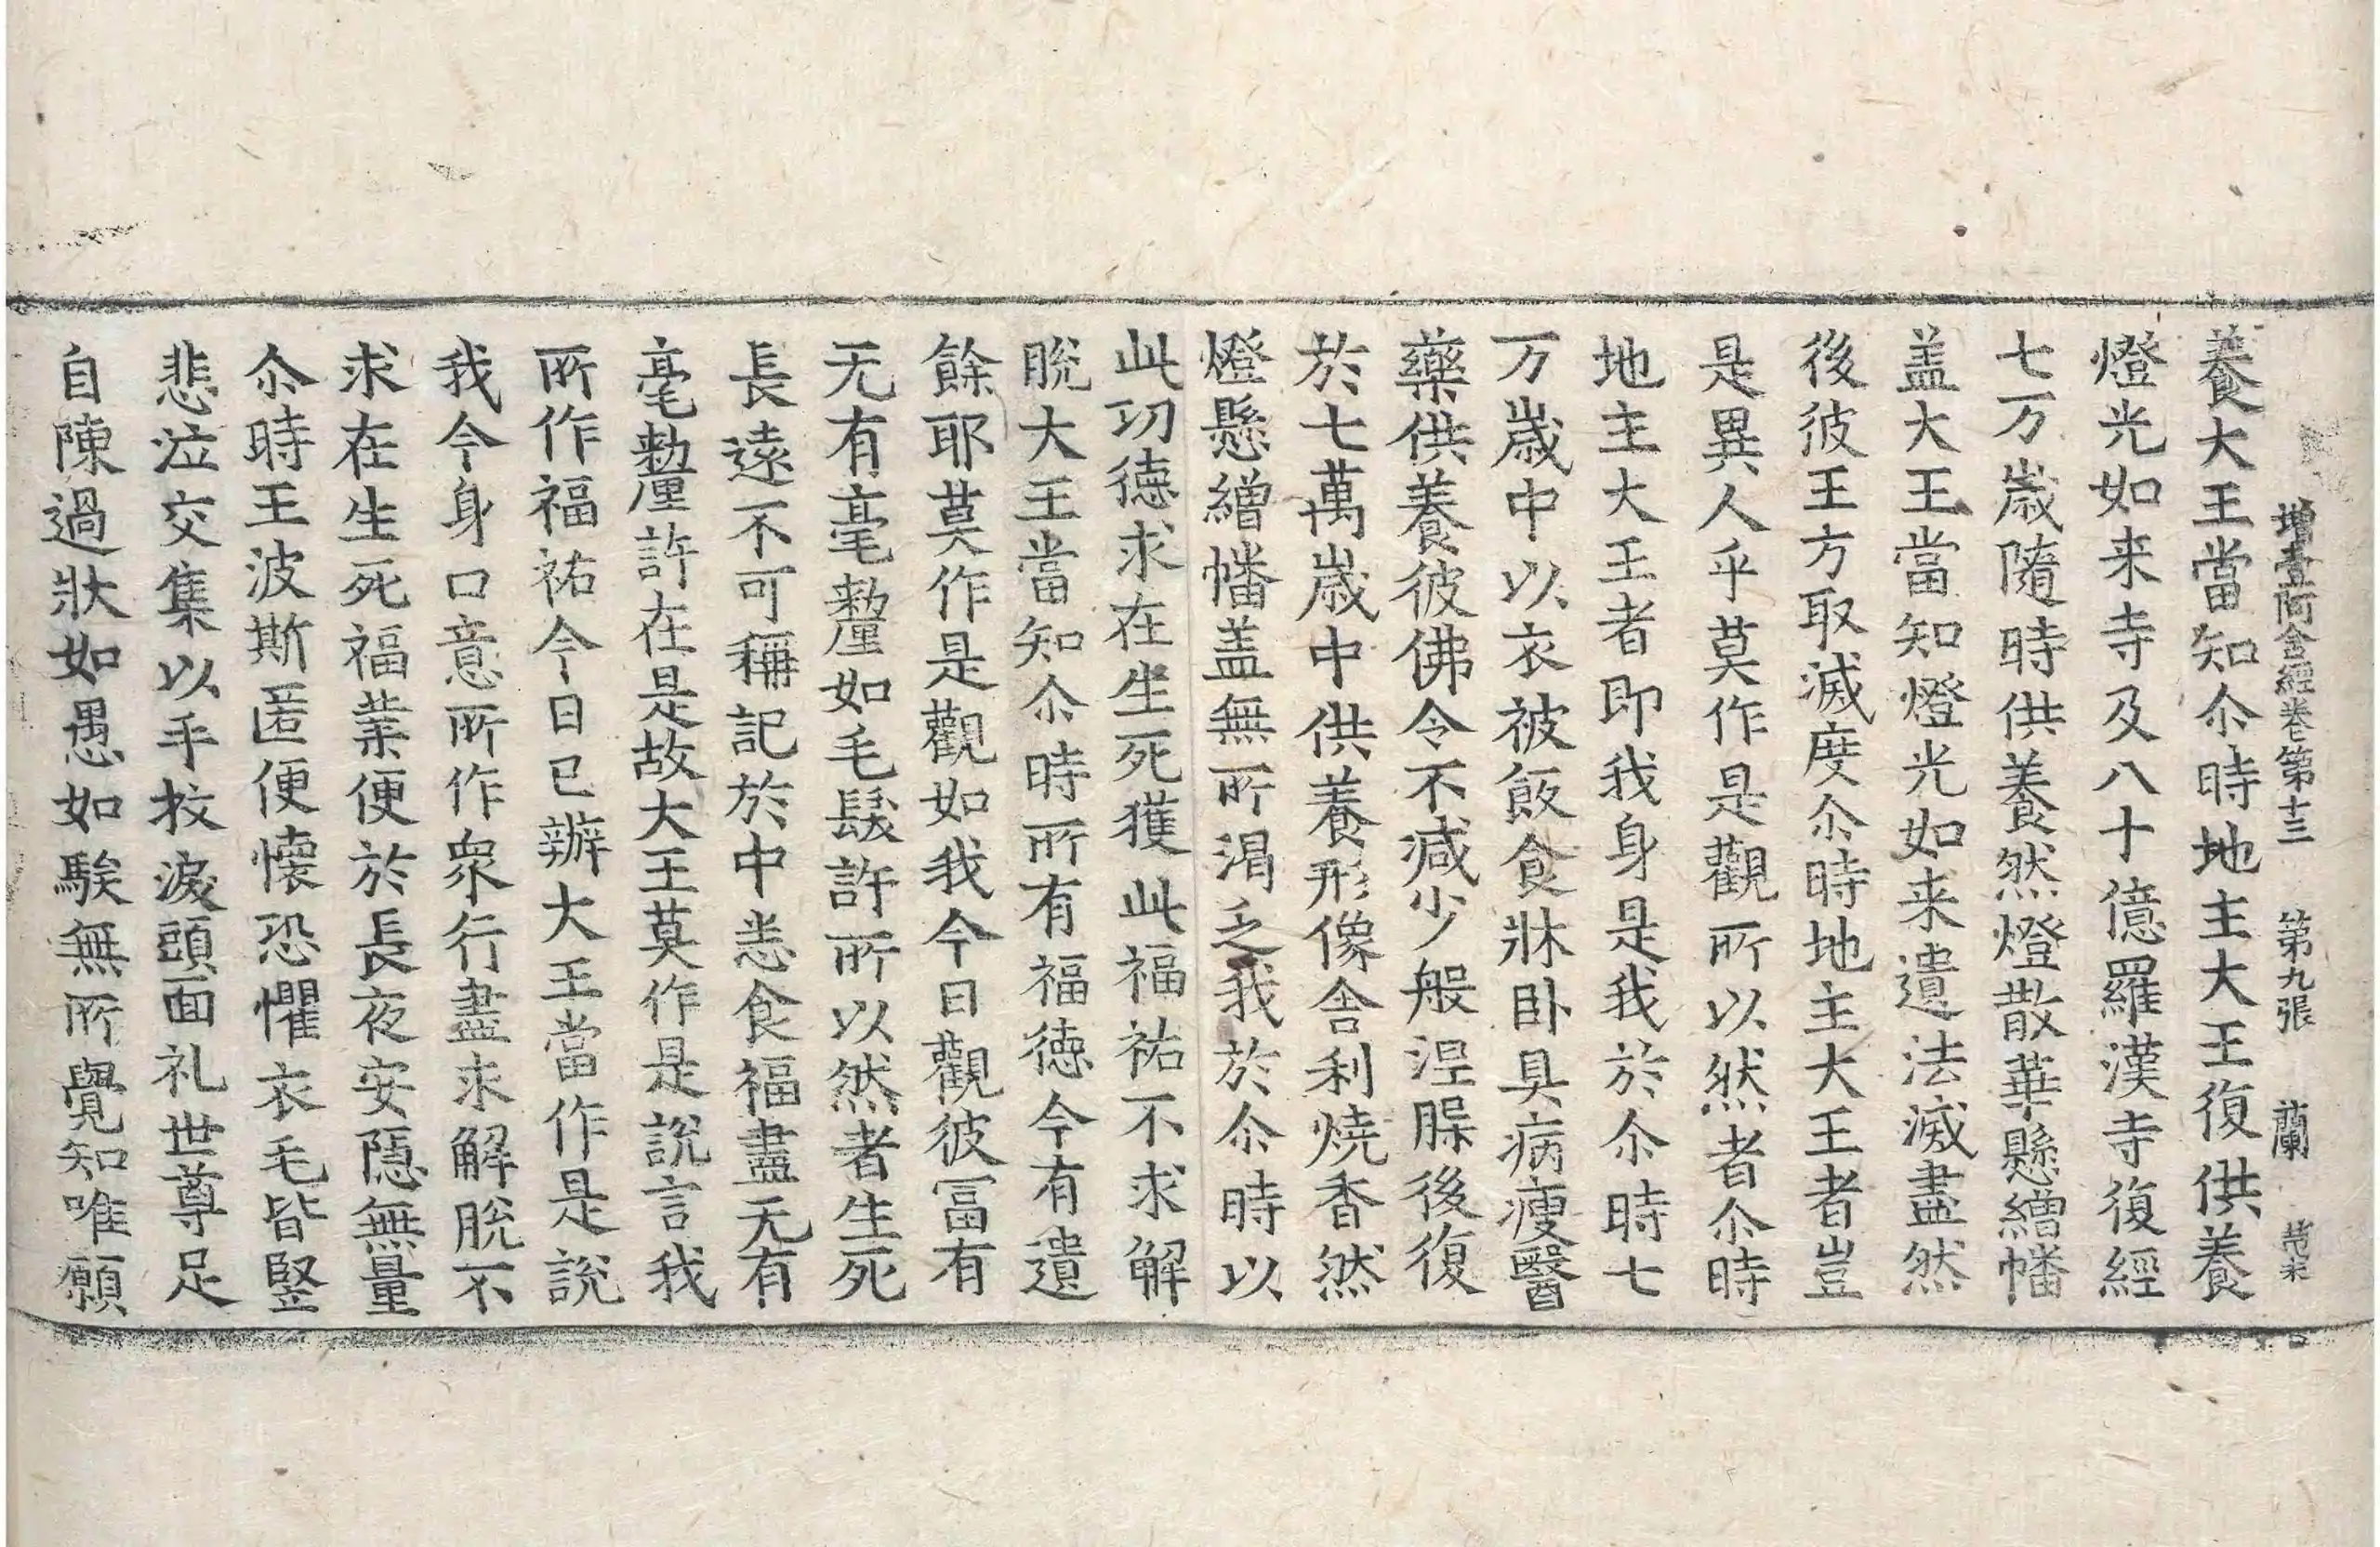 增壹阿含經卷第十三 第九張 蘭
養大王當知尒時地主大王復供養
燈光如来寺及八十億羅漢寺復經
七万歲隨時供養然燈散華懸繒幡
盖大王當知燈光如来遺法滅盡然
後彼王方取滅度尒時地主大王者豈
是異人乎莫作是觀所以然者尒時
地主大王者即我身是我於尒時七
万歲中以衣被飯食牀卧具病瘦醫
藥供養彼佛令不減少般涅腜後復
於七萬歲中供養形像舍利燒香然
燈懸繒幡盖無所渴乏我於尒時以
此功德求在生死獲此福祐不求解
脫大王當知尒時所有福德今有遺
餘耶莫作是觀如我今日觀彼冨有
无有毫釐如毛髮許所以然者生死
長遠不可稱記於中悉食福盡无有
毫釐許在是故大王莫作是說言我
所作福祐今日已辦大王當作是說
我今身口意所作衆行盡求解脫不
求在生死福業便於長夜安隱無量
尒時王波斯匿便懷恐懼衣毛皆竪
悲泣交集以手抆淚頭面礼世尊足
自陳過狀如愚如騃無所覺知唯願